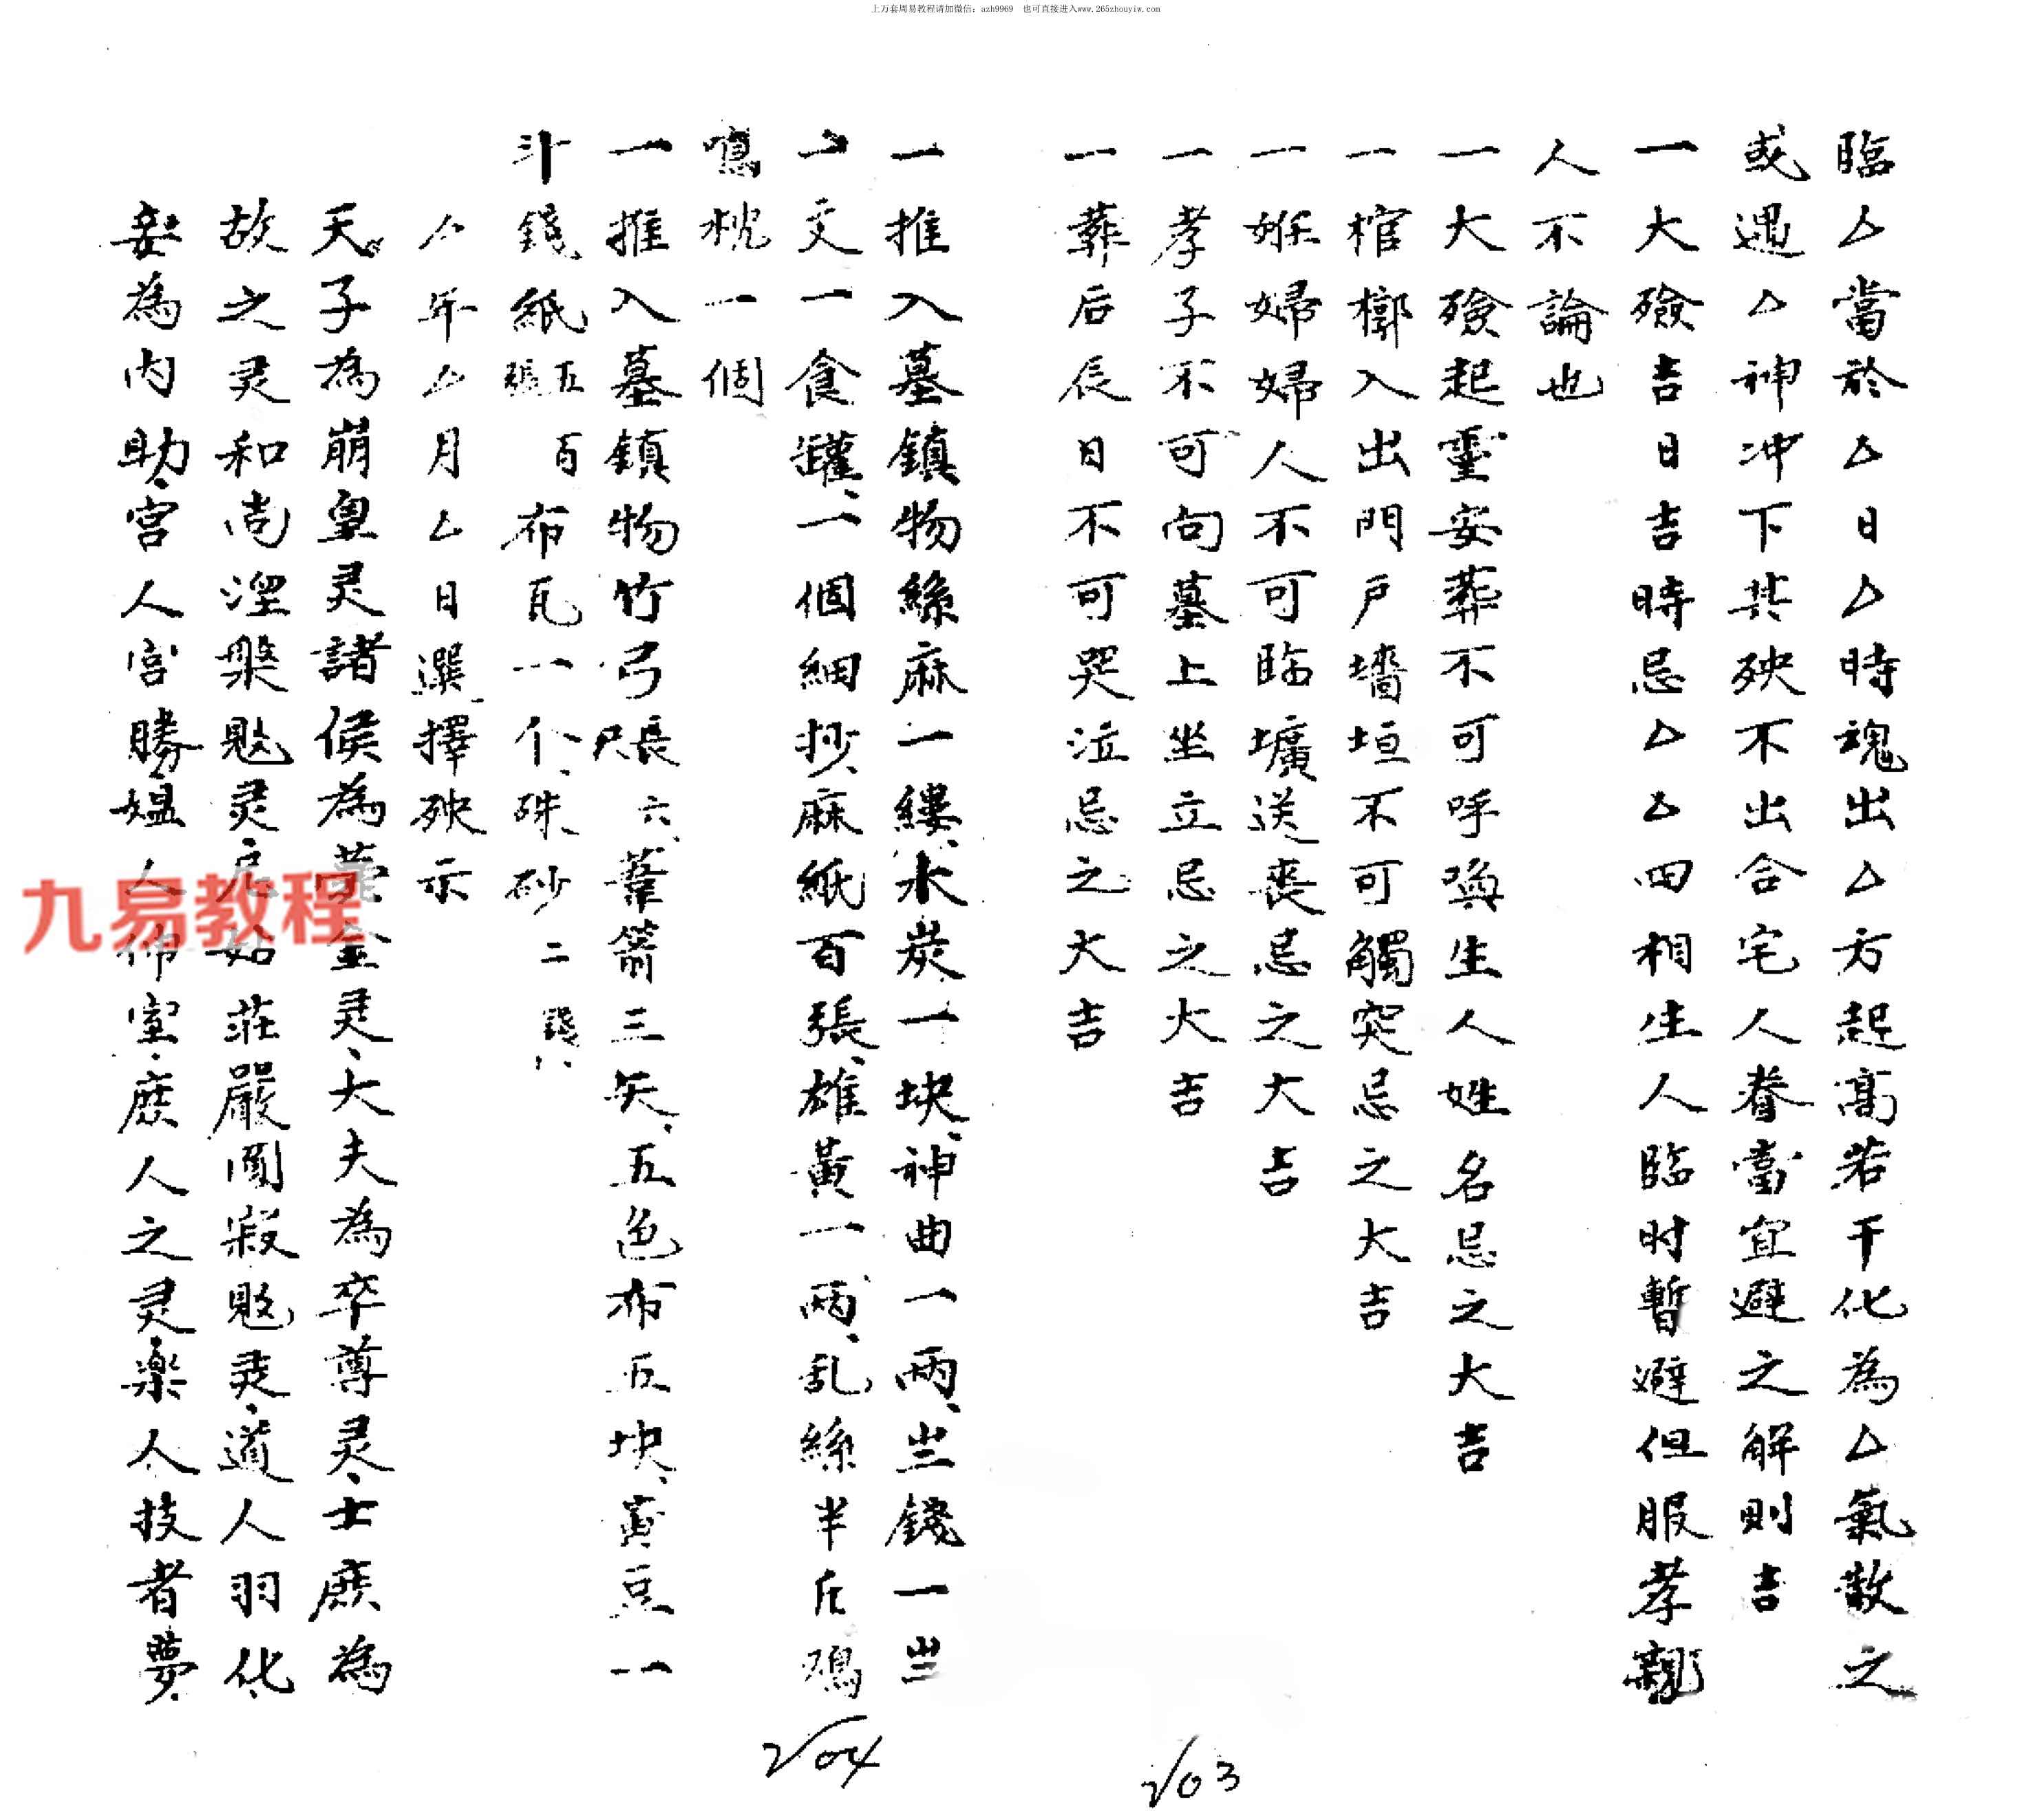 上万套周易教程请加微信：azh9969 也可直接进入www.265zhouyiw.com
臨厶當於厶日厶時魂出厶方起高若干化為厶氣散之
或遇厶神冲下其殃不出合宅人眷當宜避之解則吉
一大殮吉日吉時忌厶厶四相生人臨时暫避但服孝親
人不論也
一大殮起靈安葬不可呼喚生人姓名忌之大吉
一棺槨入出門户墻垣不可觸突忌之大吉
一妊婦婦人不可臨壙送喪忌之大吉
一孝子不可向墓上坐立忌之大吉
一葬后辰日不可哭泣忌之大吉
一推入墓鎮物絲麻一縷、木炭一块、神曲一兩、岦錢一岦
一文一食罐、一個細抄、麻紙百張、雄黃一兩、乱絲半斤鳴
枕一個
一推入墓鎮物竹弓長六尺、葦箭三矢、五色布五块、黃豆一
斗錢紙五百張布瓦一个、硃砂二錢
厶年厶月厶日選擇殃示
天子為崩皇灵諸侯為薨金灵、大夫為卒尊灵、士庶為
故之灵和尚涅槃灵、尼姑莊嚴圓寂灵、道人羽化
妾為内助、宫人宫勝媪人佈室、庶人之灵、楽人技者夢、
九易教程
203
204